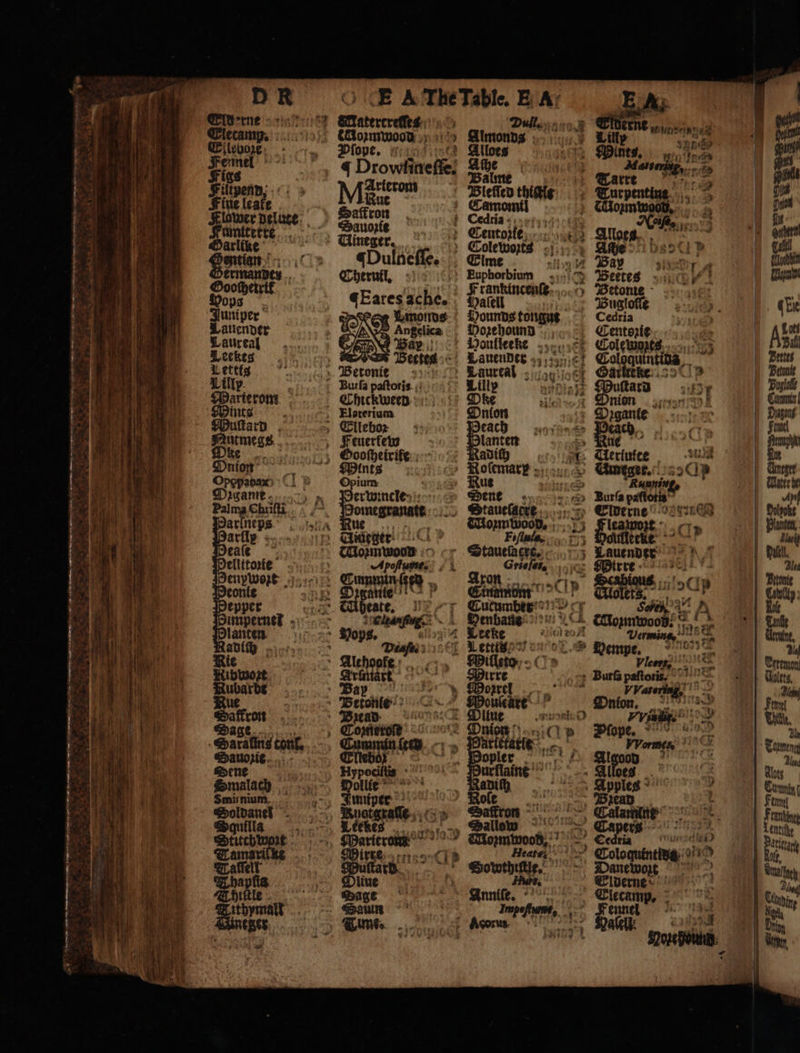 DR
E A The Table. E A
E. A.
Elderne
Elecampe.
Ellebore.
Fennel
Figs
Filipend.
Fiue leafe
Flower deluce
Fumiterre
Garlike
Gentian
Germander
Goosheirif
Hops
Juniper
Lauender
Laureal
Leekes
Lettis
Lilly
Marierom
Mints
Mustard
Nutmegs
Oke
Onion
Opopanax
Organie
Palma Christi
Parsneps
Parsly
Pease
Pellitorie
Penywort
Peonie
Pepper
Pimpernel
Planten
Radish
Rie
Ribwort
Rubarbe
Rue
Saffron
Sage
Sarasins conf.
Sauorie
Sene
Smalach
Smirnium.
Soldanel
Squilla
Stitchwort
Tamariske
Tassell
Thapsia
Thistle
Tithymall
Uineger
Watercresses
Wormwood
Ysope.
¶ Drowsinesse.
Marierom
Rue
Saffron
Sauorie
Uineger.
¶ Dulnesse.
Cheruil,
¶ Eares ache.
Almonds
Angelica
Bay
Beetes
Betonie
Bursa pastoris
Chickweed
Elaterium
Ellebor
Feuerfew
Goosheirife
Mints
Opium
Perwincle
Pomegranate
Rue
Uineger
Wormwood
Apostume.
Cummin seed
Organie
Wheate.
Cleansing.
Hops.
Deafe.
Alehoofe
Arsmart
Bay
Betonie
Bread
Conierose
Cummin seed
Ellebor
Hypocistis
Hollie
Juniper
Knotgrasse
Leekes
Marierome
Mirre
Mustard
Oliue
Sage
Sauin
Time.
Dull.
Almonds
Alloes
Ashe
Balme
Blessed thistle
Camomil
Cedria
Centorie
Coleworts
Elme
Euphorbium
Frankincense
Hasell
Hounds tongue
Horehound
Housleeke
Lauender
Laureal
Lilly
Oke
Onion
Peach
Planten
Radish
Rosemary
Rue
Sene
Stauesacre
Wormwood.
Fistula.
Stauesacre.
Griefes.
Aron
Cinamom
Cucumber
Henbane
Leeke
Lettis
Misleto
Mirre
Morrel
Mouseare
Oliue
Onion
Parietarie
Popler
Purslaine
Radish
Rose
Saffron
Sallow
Wormwood.
Heate.
Sowthistle.
Hurt.
Annise.
Impostume,
Acorus
Elderne
Lilly
Mints.
Mattering.
Tarre
Turpentine
Wormwood.
Noise.
Alloes
Ashe
Bay
Beetes
Betonie
Buglosse
Cedria
Centorie
Coleworts
Coloquintida
Garlicke
Mustard
Onion
Organie
Peach
Rue
Ueriuice
Uineger.
Running.
Bursa pastoris
Elderne
Fleawort
Housleeke
Lauender
Mirre
Scabious
Uiolets.
Sores.
Wormwood.
Vermine,
Hempe.
Vlcers,
Bursa pastoris.
VVatering,
Onion.
VVindie.
Ysope.
VVormes,
Algood
Alloes
Apples
Bread
Calamint
Capers
Cedria
Coloquintida
Danewort
Elderne
Elecamp.
Fennel
Hasell
Horehound